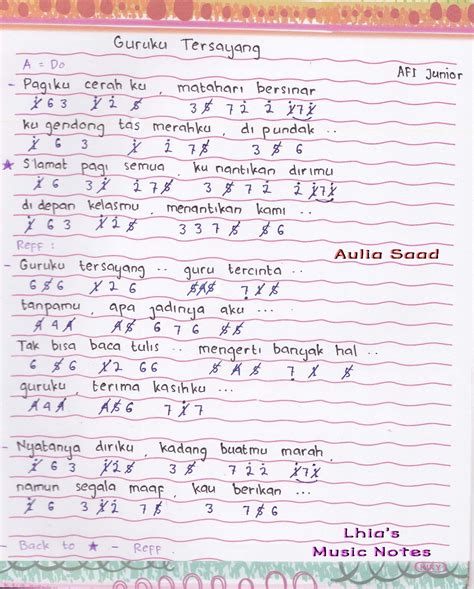 Guruku Tersayang
A = Do
AFI Junior
- Pagiku cerah ku, matahari bersinar
1 6 3 1 2 5 3 5 7 2 2 1 7 1
ku gendong tas merahku, di pundak ..
1 6 3 1 2 7 5 3 5 6
★ Slamat pagi semua, ku nantikan dirimu
1 6 3 1 2 7 5 3 5 7 2 2 1 7 1
di depan kelasmu, menantikan kami ..
1 6 3 1 2 5 3 3 7 5 5 6
Reff :
Aulia Saad
- Guruku tersayang .. guru tercinta ..
6 5 6 1 2 6 5 4 5 7 1 5
tanpamu, apa jadinya aku ...
4 4 4 4 5 6 7 6 5 5
Tak bisa baca tulis .. mengerti banyak hal ..
6 5 6 1 2 6 6 5 4 5 7 1 5
guruku, terima kasihku ...
4 4 4 4 5 6 7 1 7
- Nyatanya diriku, kadang buatmu marah,
1 6 3 1 2 5 3 5 7 2 2 1 7 1
namun segala maaf, kau berikan ...
1 6 3 1 2 7 5 3 7 5 6
- Back to ★ - Reff
Lhia's
Music Notes